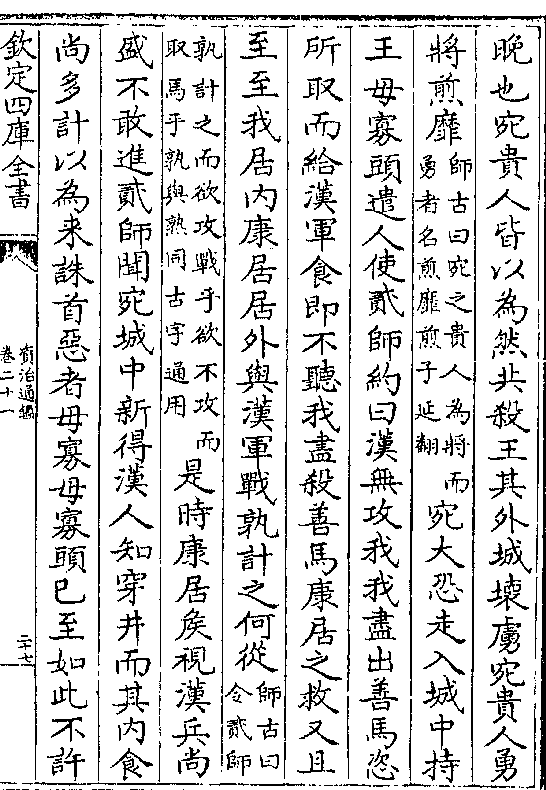 晚也宛貴人皆以為然共殺王其外城壊虜宛貴人勇
將煎靡師古曰宛之貴人為將而勇者名煎靡煎子延翻宛大恐走入城中持
王毋寡頭遣人使貳師約曰漢無攻我我盡出善馬恣
所取而給漢軍食即不聽我盡殺善馬康居之救又且
至至我居内康居居外與漢軍戰孰計之何從師古曰令貳師
孰計之而欲攻戰乎欲不攻而取馬乎孰與熟同古字通用是時康居矦視漢兵尚
盛不敢進貳師聞宛城中新得漢人知穿井而其内食
尚多計以為来誅首惡者毋寡毋寡頭已至如此不許
欽定四庫全書
資治通鑑
卷二十一
二十七